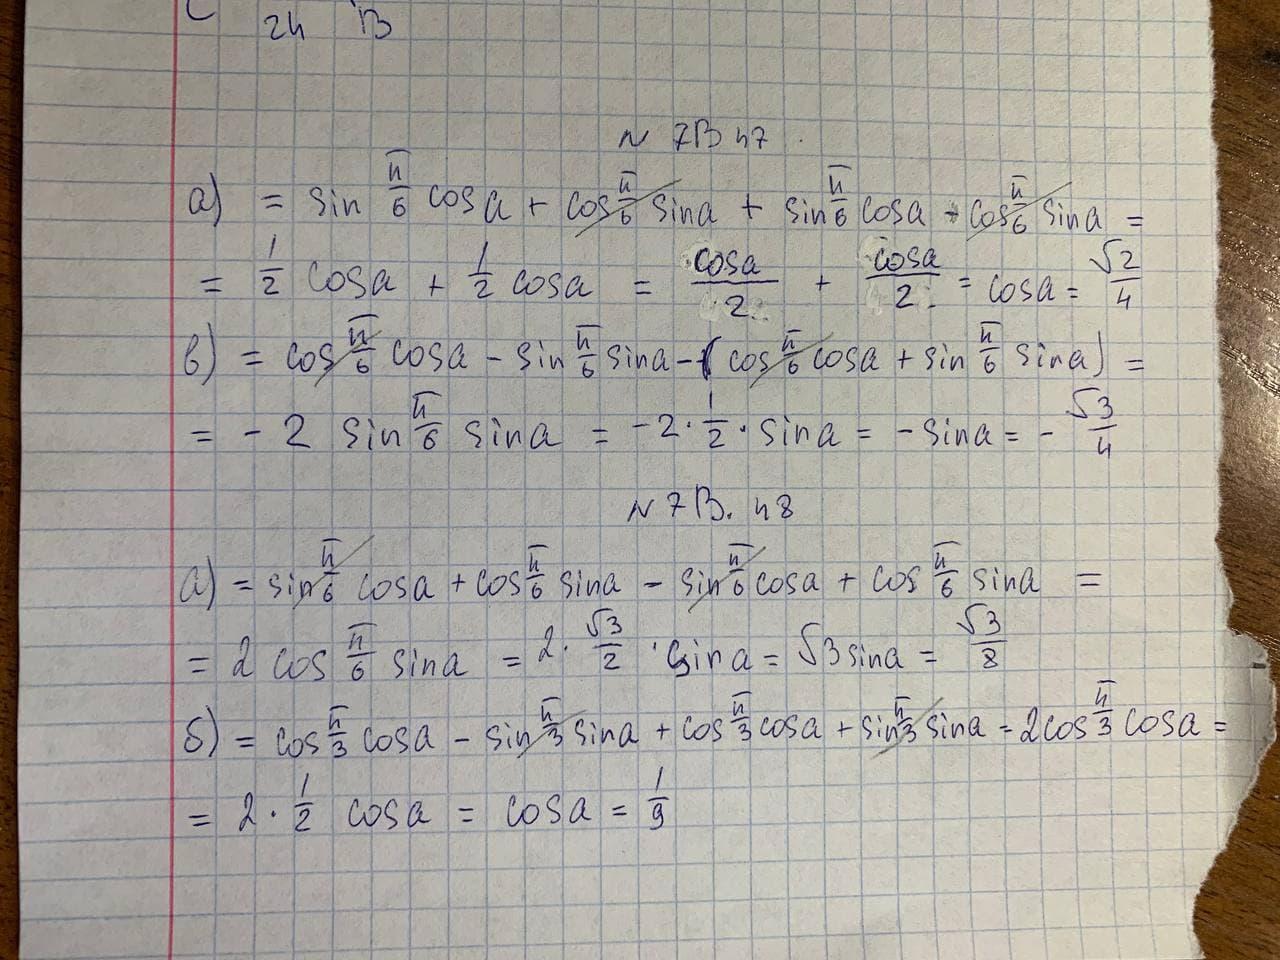 24 В
N 7В 47.
а) = sin π/6 cosa + cos π/6 sina + sin π/6 cosa - cos π/6 sina =
= 1/2 cosa + 1/2 cosa = cosa/2 + cosa/2 = cosa = √2/4
в) = cos π/6 cosa - sin π/6 sina - (cos π/6 cosa + sin π/6 sina) =
= - 2 sin π/6 sina = -2 · 1/2 · sina = - sina = - √3/4
N 7В. 48
а) = sin π/6 cosa + cos π/6 sina - sin π/6 cosa + cos π/6 sina =
= 2 cos π/6 sina = 2 · √3/2 · sina = √3 sina = √3/8
б) = cos π/3 cosa - sin π/3 sina + cos π/3 cosa + sin π/3 sina = 2cos π/3 cosa =
= 2 · 1/2 cosa = cosa = 1/9